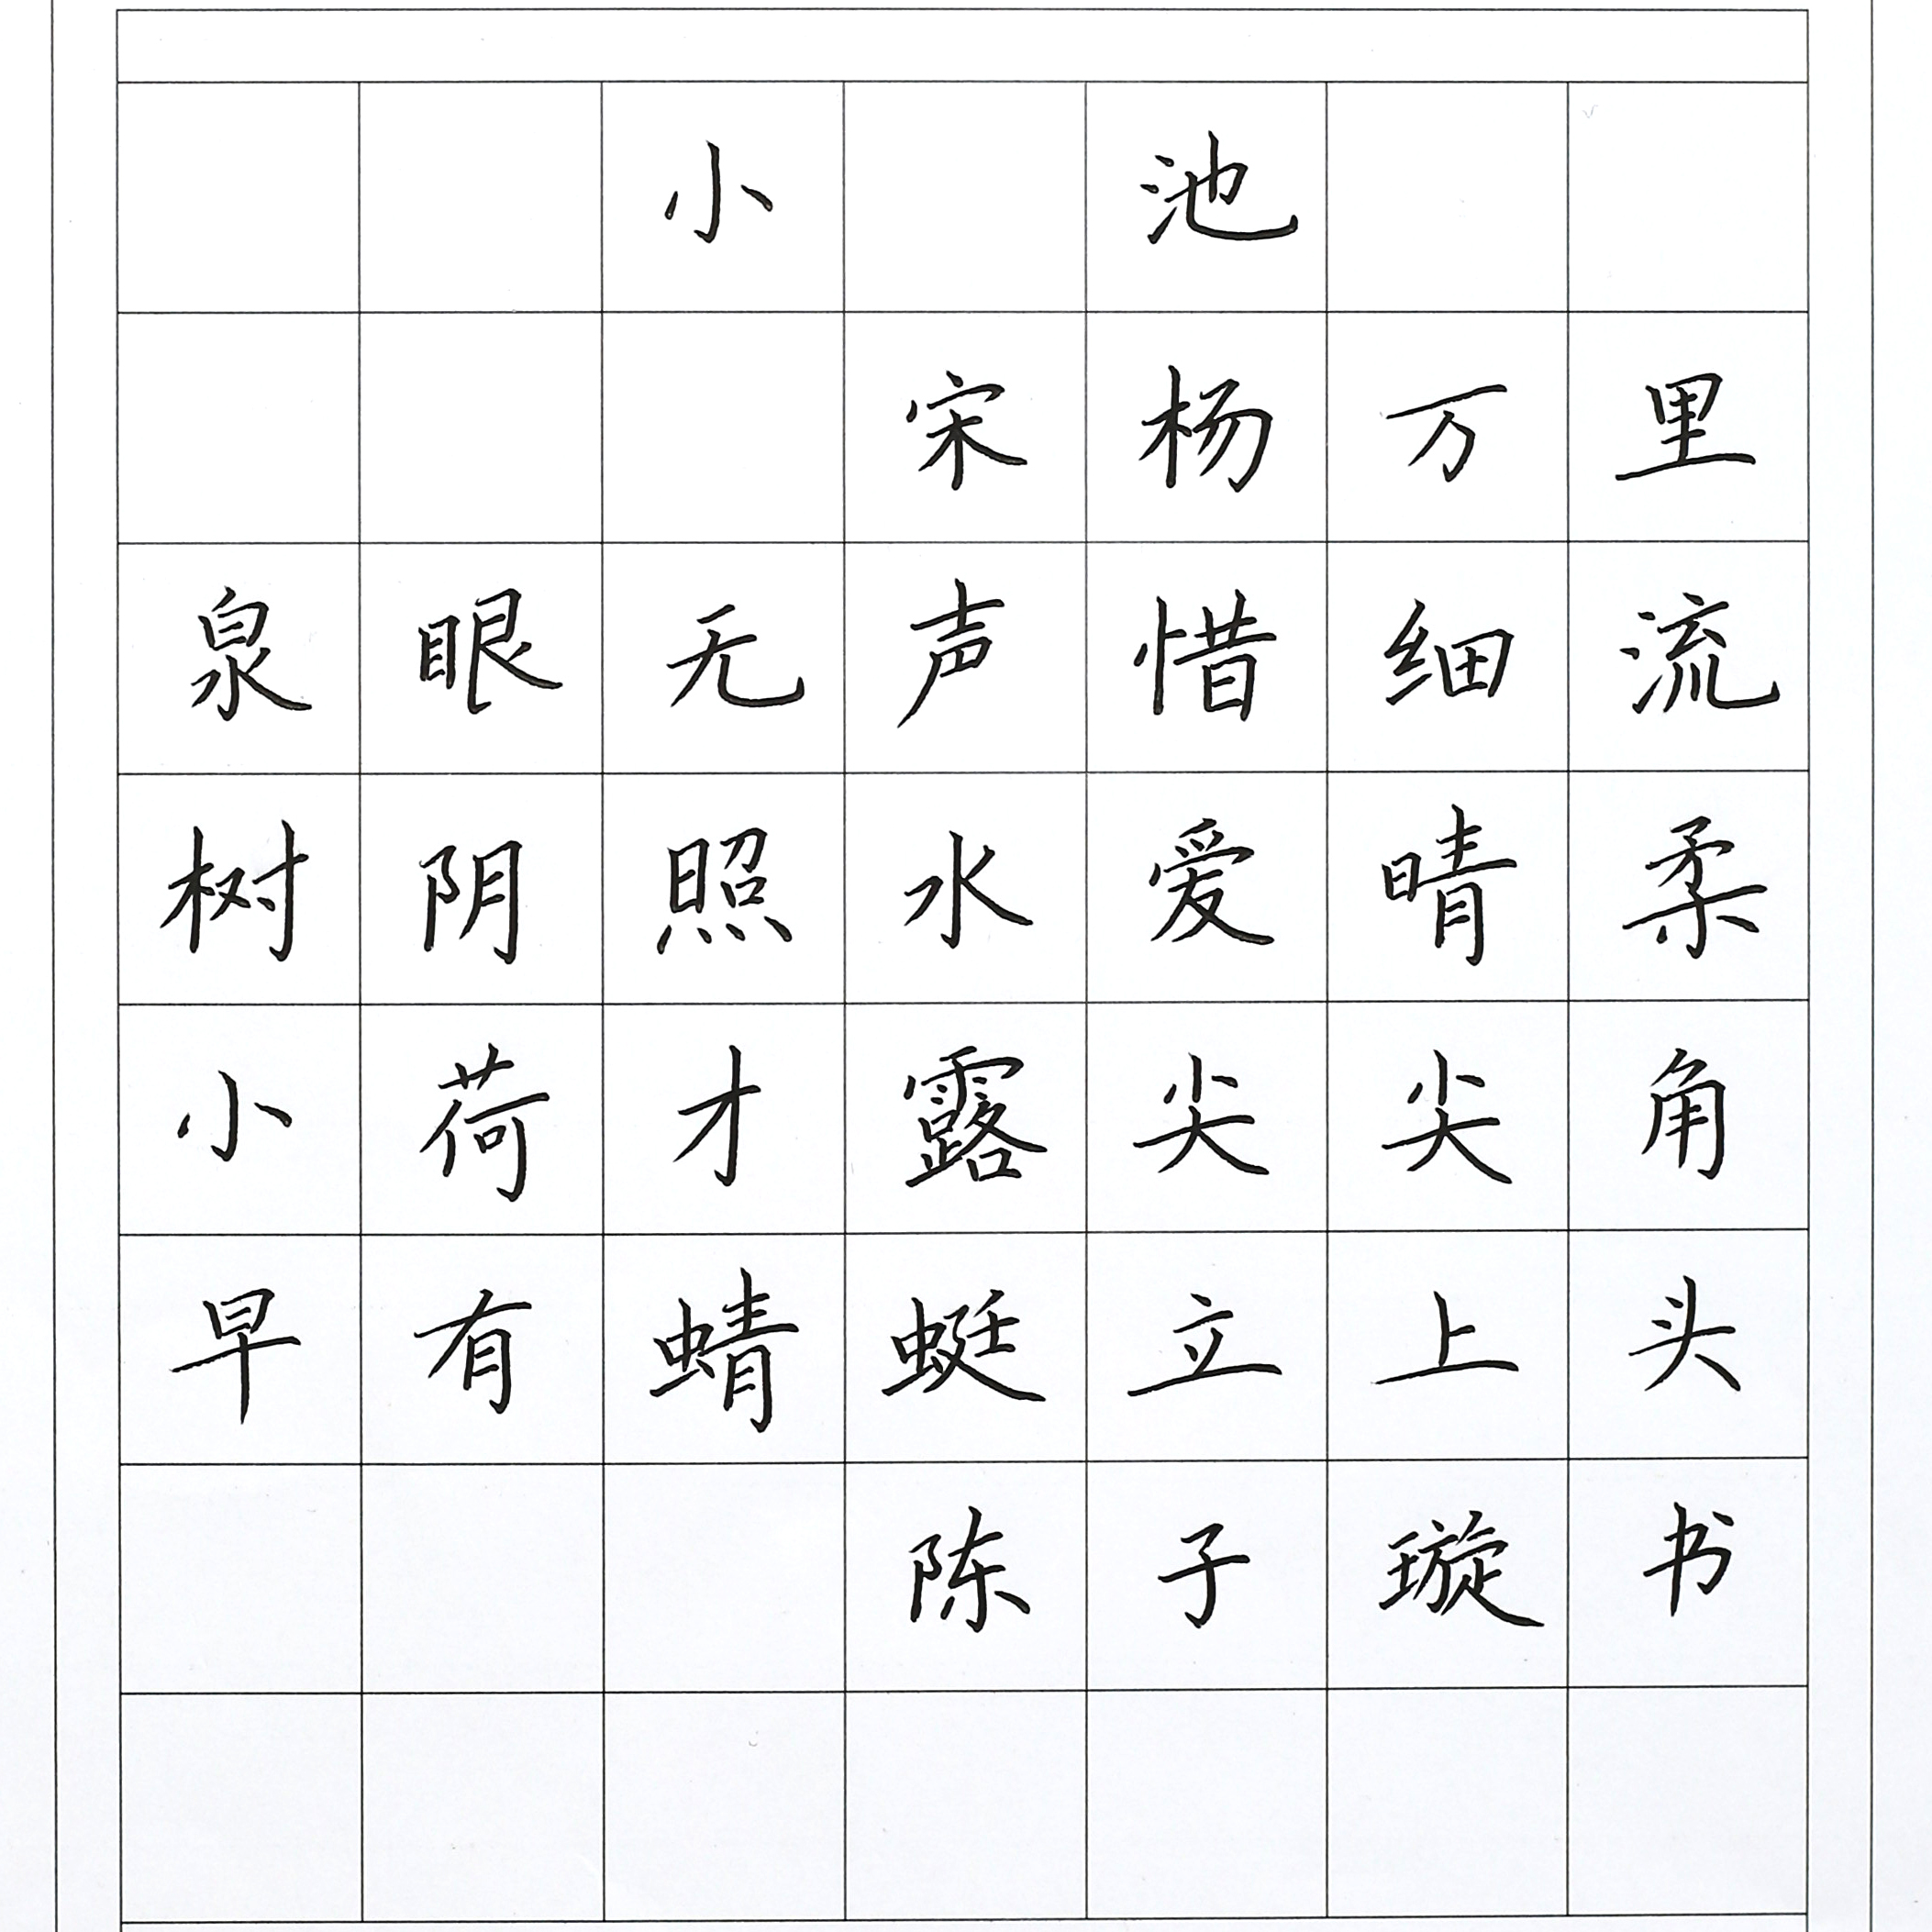 小池
宋杨万里
泉眼无声惜细流
树阴照水爱晴柔
小荷才露尖尖角
早有蜻蜓立上头
陈子璇书